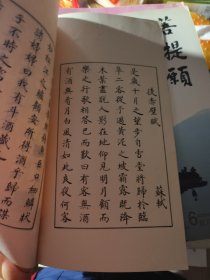 菩提願
後赤壁賦
蘇軾
是歲十月之望步自雪堂將歸於臨
皐二客從予過黃泥之坂霜露既降
木葉盡脫人影在地仰見明月顧而
樂之行歌相答已而歎曰有客無酒
有酒無肴月白風清如此良夜何客
魚巨口細鱗狀
之鱸顧安所得酒乎歸而謀
諸婦婦曰我有斗酒藏
子不時之
6